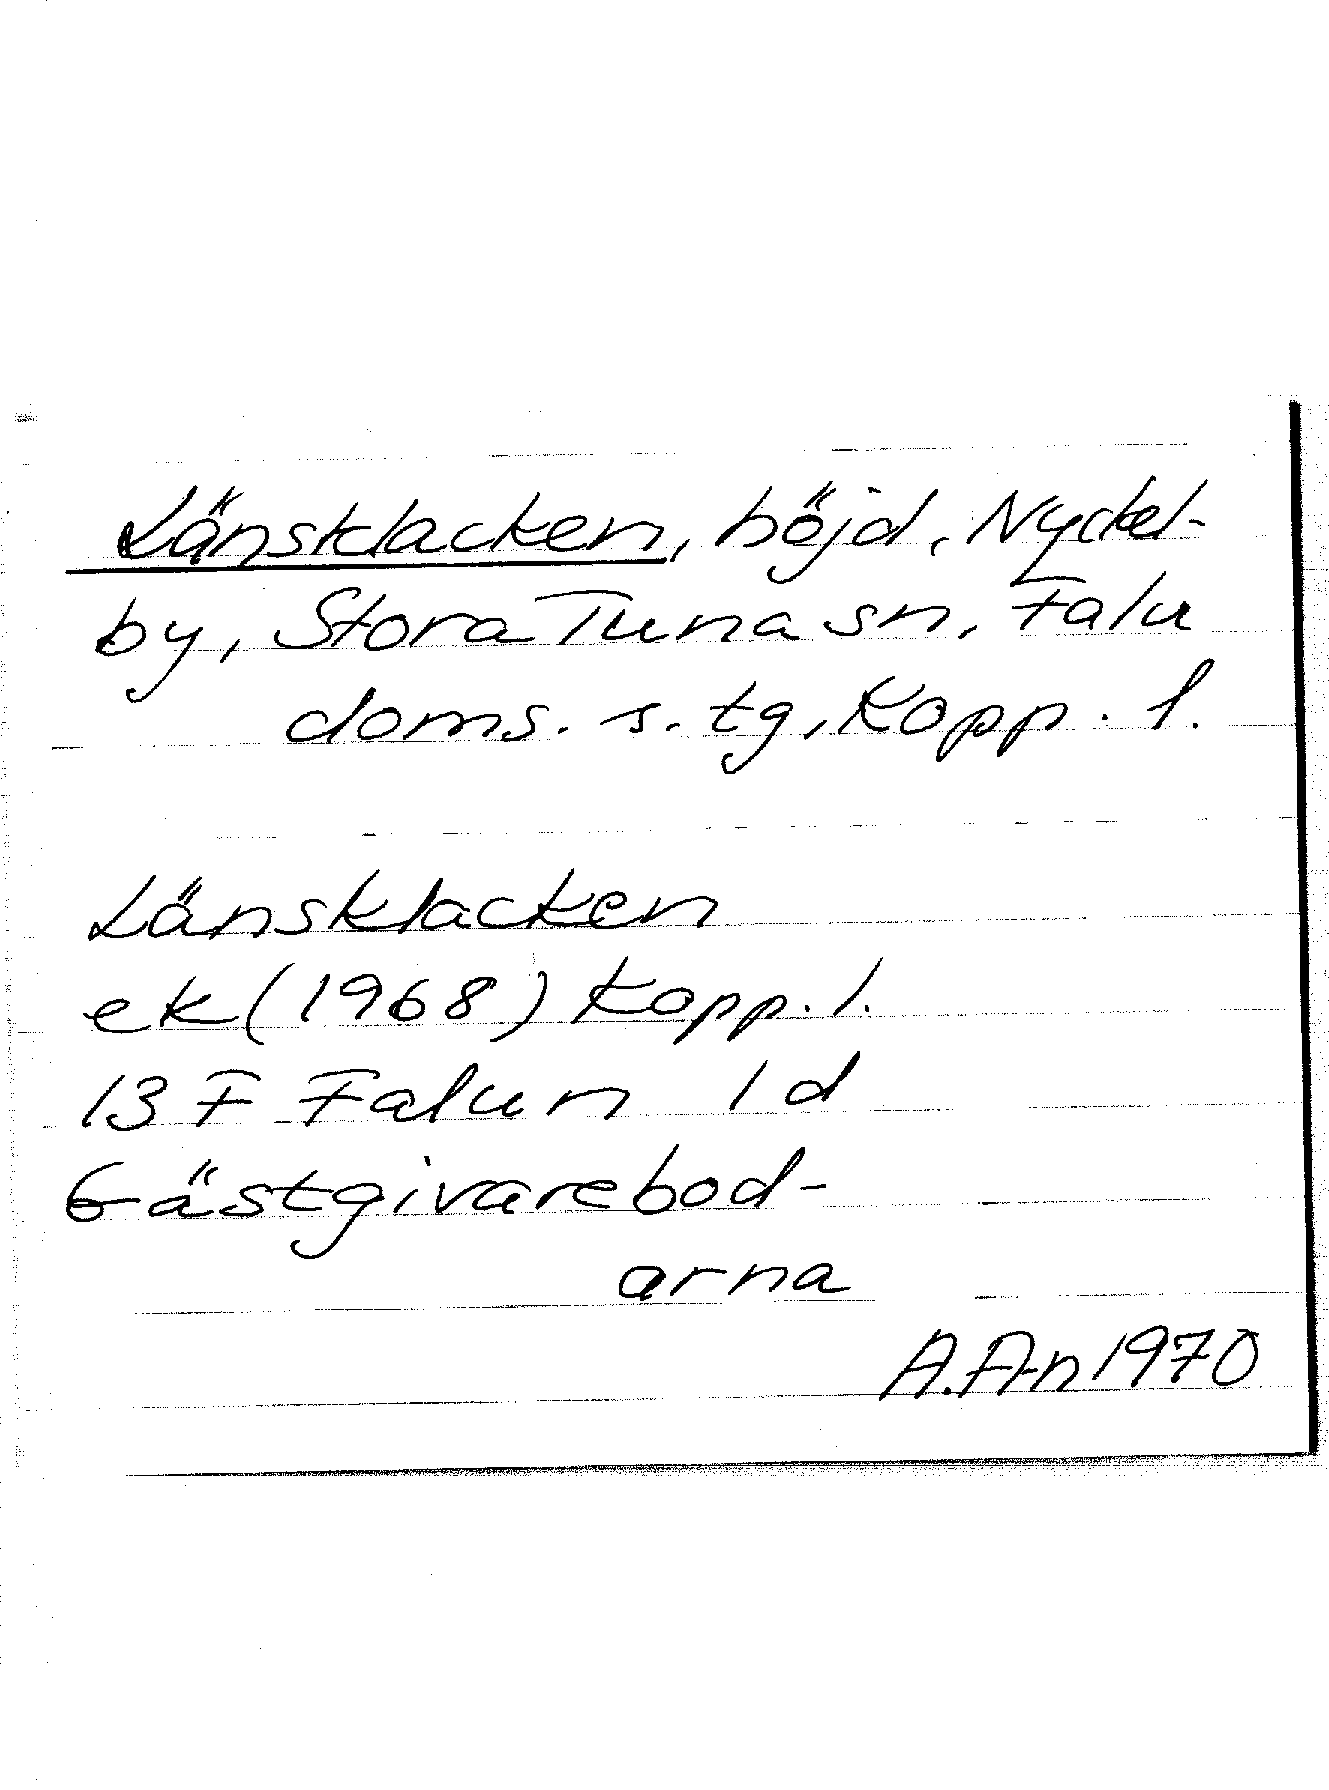 Länsklacken, höjd, Nyckel-
by, Stora Tuna sn, Falu
doms. s. tg, Kopp. l.
Länsklacken
ek (1968) Kopp. l.
13 F Falun 1 d
Gästgivarebod-
arna
A. An 1970